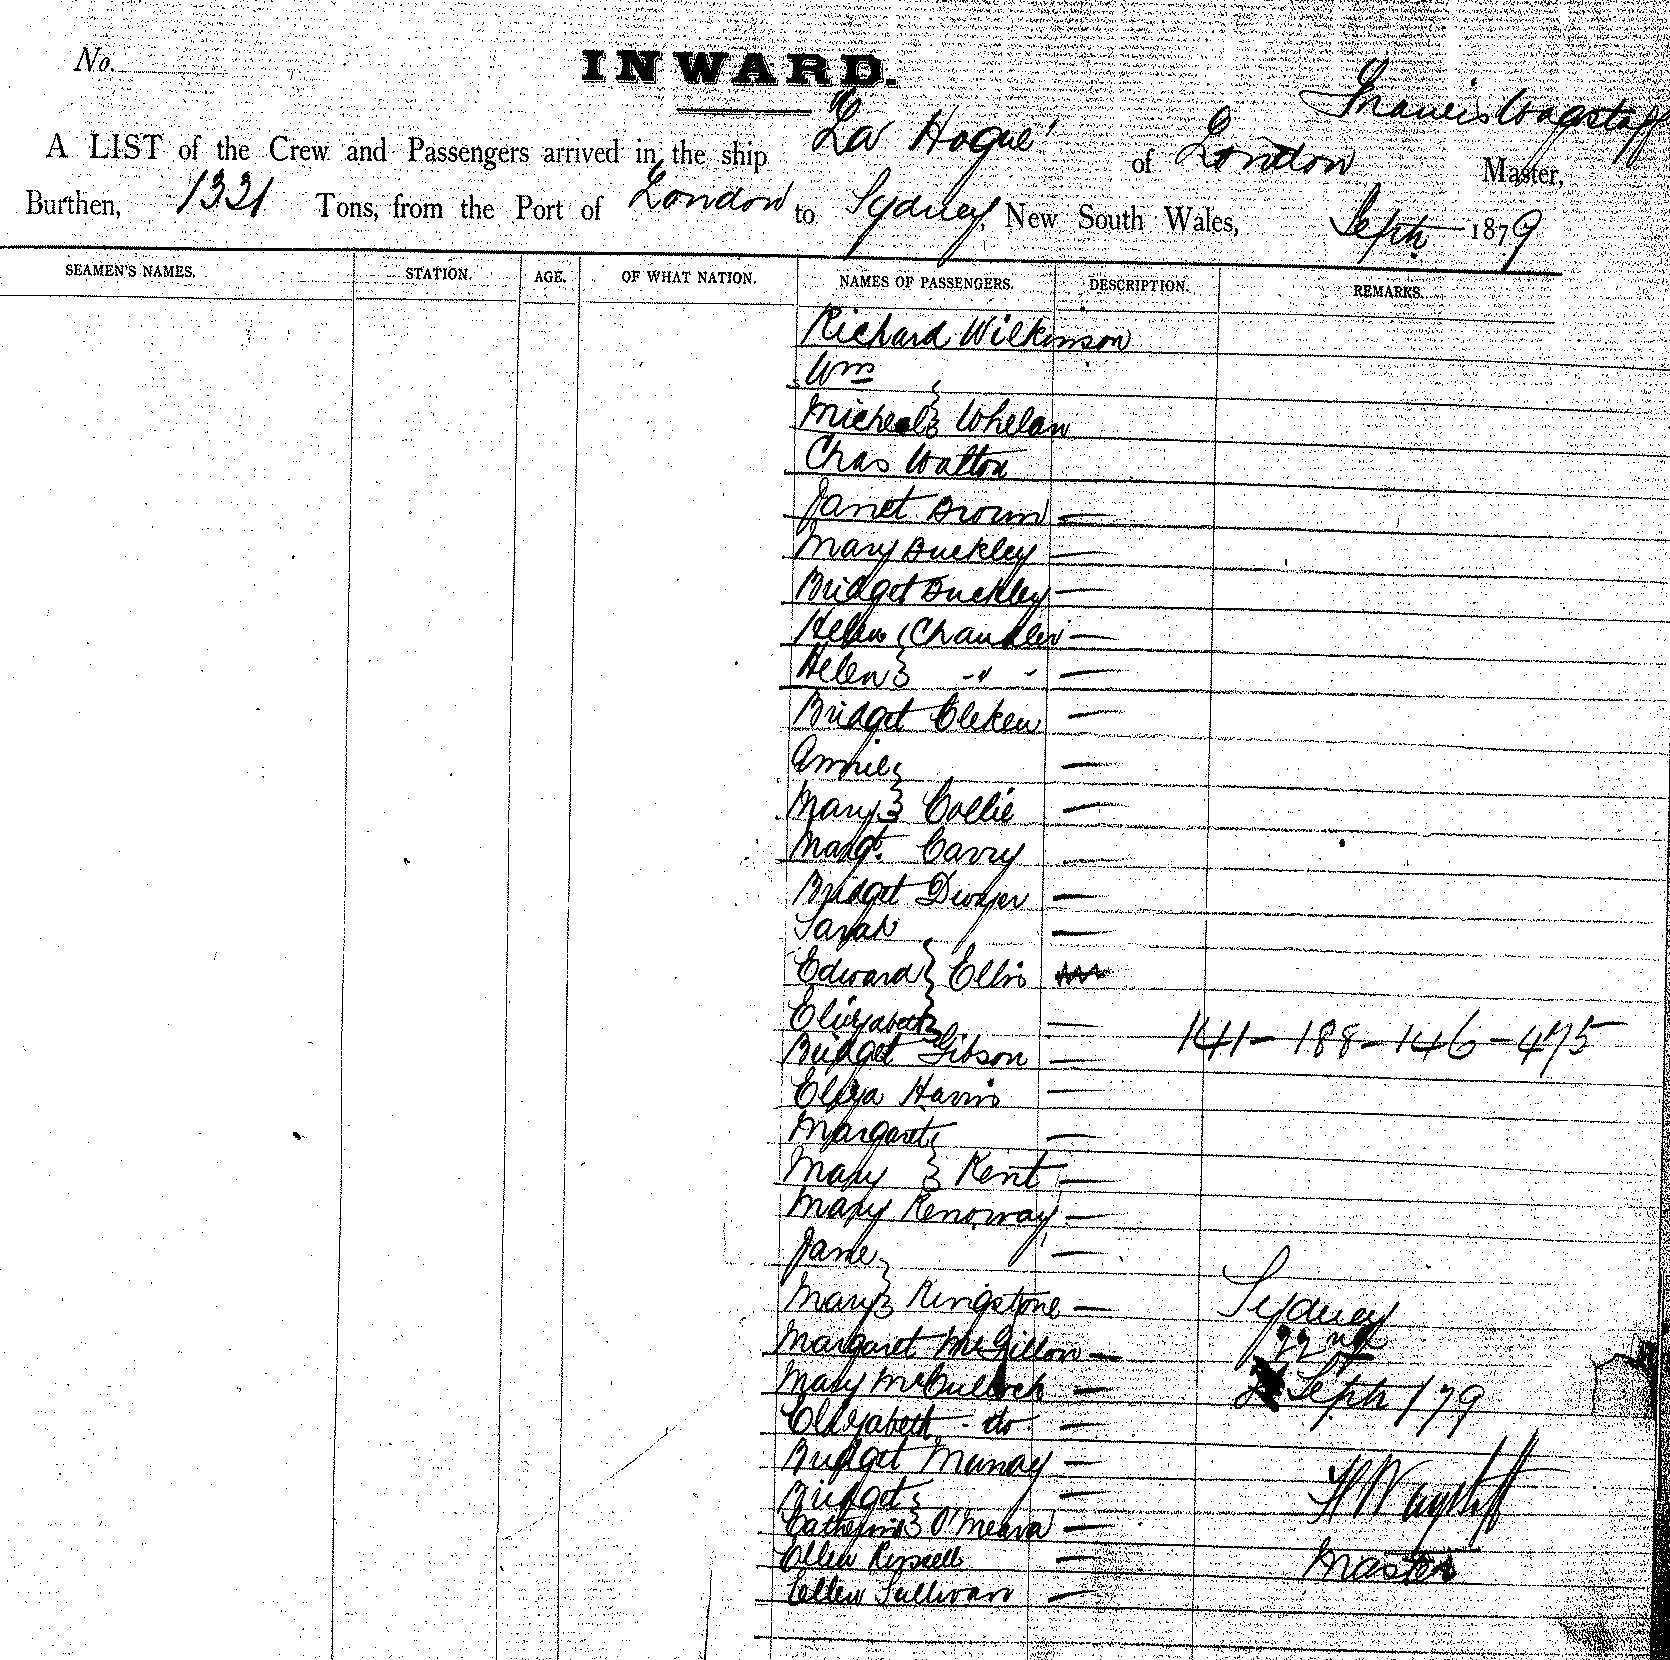 No.
INWARD.
Francis Wagstaff
A LIST of the Crew and Passengers arrived in the ship La Hogue of London Master,
Burthen, 1331 Tons, from the Port of London to Sydney, New South Wales, Septr 1879
SEAMEN'S NAMES. STATION. AGE. OF WHAT NATION. NAMES OF PASSENGERS. DESCRIPTION. REMARKS.
Richard Wilkinson
Wm
Micheal } Whelan
Chas Walton
Janet Brown —
Mary Buckley —
Bridget Buckley —
Helen { Chandler —
Helen } - " - —
Bridget Cleken —
Annie —
Mary } Collie —
Margt. Carry —
Bridget Dwyer —
Sarah —
Edward } Ellis
Elizabeth —
Bridget Gibson — 141 - 188 - 146 - 475
Eliza Harris —
Margaret —
Mary } Kent —
Mary Kenoway —
Jane —
Mary } Kingstone — Sydney
Margaret McGillon — 22nd
Mary McCulloch — Septr / 79
Elizabeth - do - —
Bridget Murray —
Bridget — H Wagstaff
Catherine } O'Meara —
Ellen Russell — Master
Ellen Sullivan —